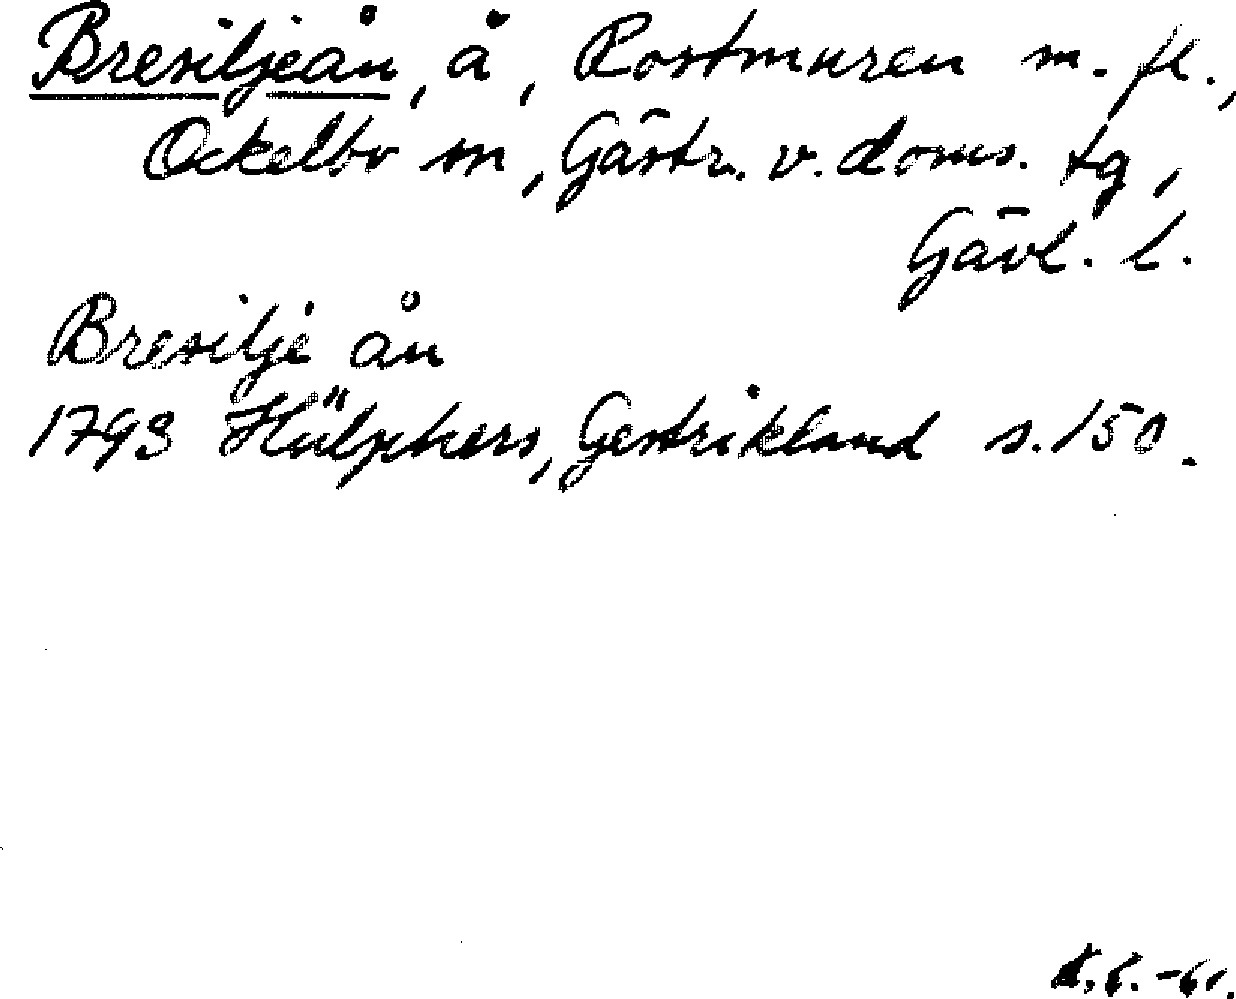 Bresiljeån, å, Rostmuren m. fl.,
Ockelbo sn, Gästr. v. doms. tg,
Gävl. l.
Bresilje ån
1793 Hülphers, Gestrikland s. 150.
-61.